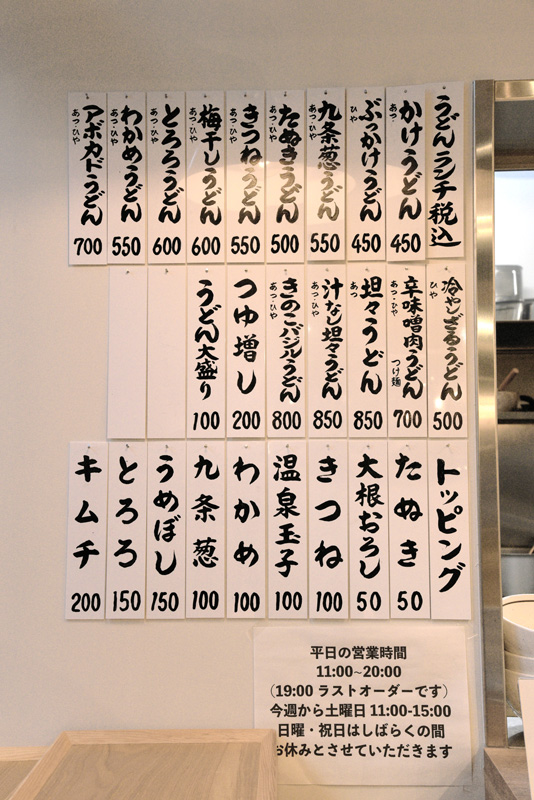 うどんランチ税込
かけうどん
あつ
450
ぶっかけうどん
ひや
450
九条葱うどん
あつ・ひや
550
たぬきうどん
あつ・ひや
500
きつねうどん
あつ・ひや
550
梅干しうどん
あつ・ひや
600
とろろうどん
あつ・ひや
600
わかめうどん
あつ・ひや
550
アボカドうどん
あつ・ひや
700
冷やしざるうどん
ひや
500
辛味噌肉うどん
あつ・ひや
つけ麺
700
坦々うどん
あつ
850
汁なし坦々うどん
あつ・ひや
850
きのこバジルうどん
あつ・ひや
800
つゆ増し
200
うどん大盛り
100
トッピング
たぬき
50
大根おろし
50
きつね
100
温泉玉子
100
わかめ
100
九条葱
100
うめぼし
150
とろろ
150
キムチ
200
平日の営業時間
11:00~20:00
（19:00 ラストオーダーです）
今週から土曜日 11:00-15:00
日曜・祝日はしばらくの間
お休みとさせていただきます